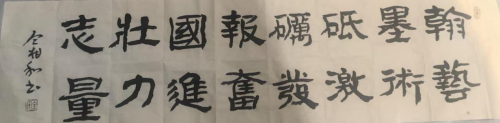 翰墨砥礪報國壯志
藝術激發奮進力量